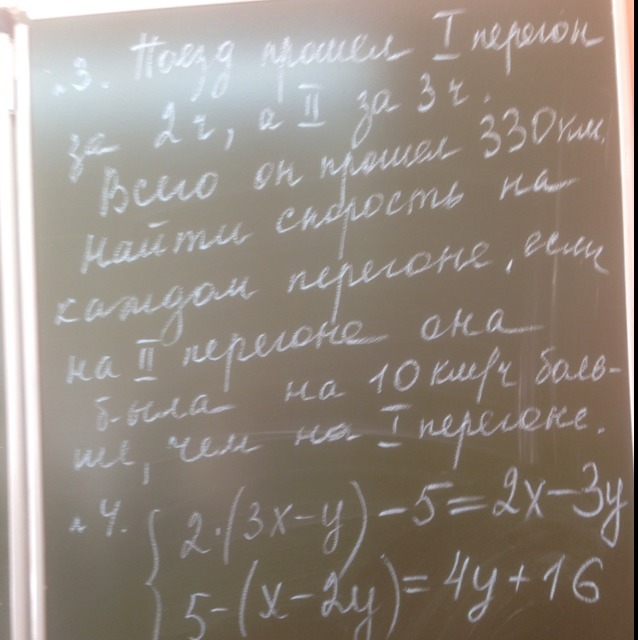 №3. Поезд прошел I перегон
за 2ч, а II за 3ч.
Всего он прошел 330 км.
Найти скорость на
каждом перегоне, если
на II перегоне она
была на 10 км/ч боль-
ше, чем на I перегоне.
№4. { 2·(3x-y)-5=2x-3y
5-(x-2y)=4y+16